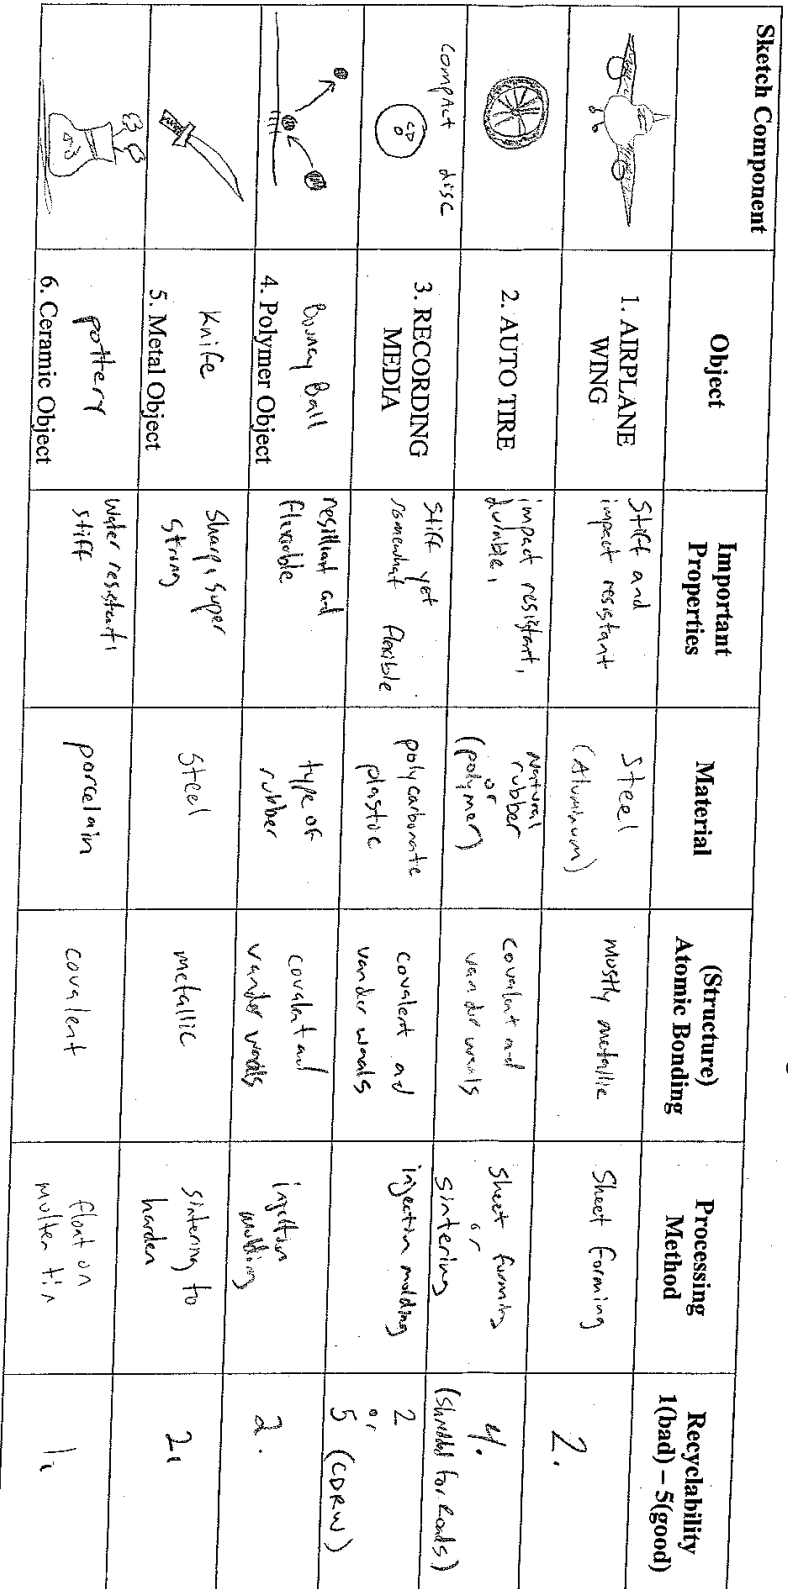 Sketch Component
Object
Important
Properties
Material
(Structure)
Atomic Bonding
Processing
Method
Recyclability
1(bad) – 5(good)
1. AIRPLANE
WING
Stiff and
impact resistant
Steel
(Aluminum)
mostly metallic
Sheet forming
2.
2. AUTO TIRE
impact resistant,
durable,
natural
rubber
or
(polymer)
covalent and
van der waals
sheet forming
or
sintering
4.
(shredded for Roads)
compact disc
CD
3. RECORDING
MEDIA
Stiff yet
somewhat flexible
polycarbonate
plastic
covalent ad
vander waals
injection molding
2
or
5 (CDRW)
Bouncy Ball
4. Polymer Object
resilliant and
flexible
type of
rubber
covalent and
vander waals
injection
molding
2.
Knife
5. Metal Object
Sharp, super
strong
Steel
metallic
sintering to
harden
2.
pottery
6. Ceramic Object
water resistant,
stiff
porcelain
covalent
float on
multen tin
1.